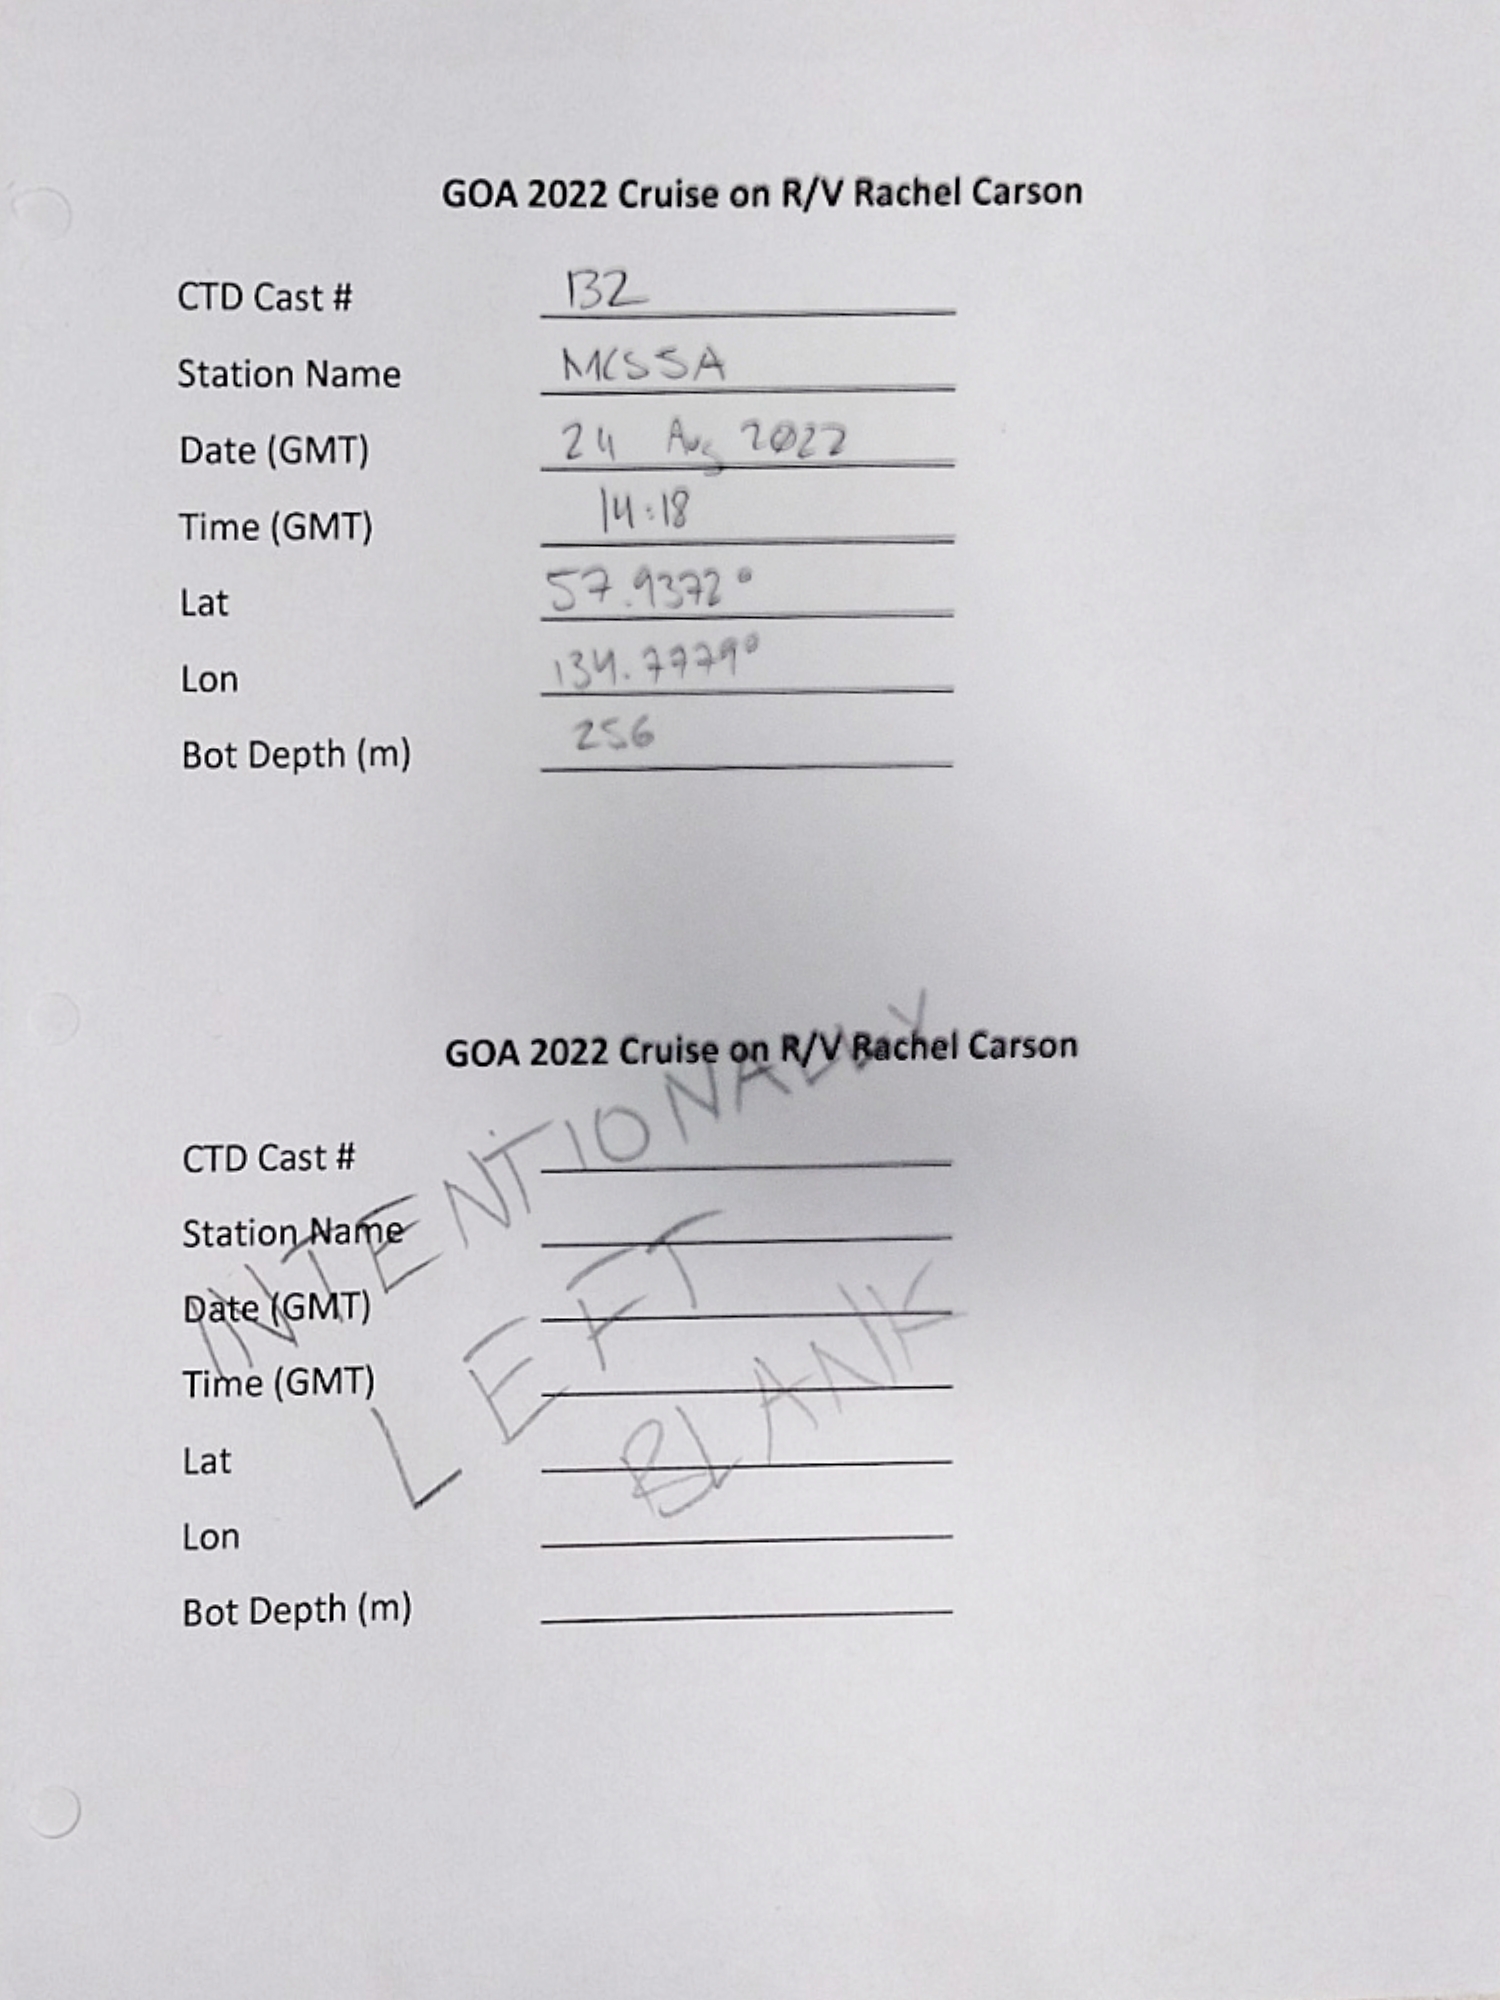 GOA 2022 Cruise on R/V Rachel Carson
CTD Cast # 132
Station Name MCS5A
Date (GMT) 24 Aug 2022
Time (GMT) 14:18
Lat 57.9372°
Lon 134.7779°
Bot Depth (m) 256
GOA 2022 Cruise on R/V Rachel Carson
CTD Cast #
Station Name
Date (GMT)
Time (GMT)
Lat
Lon
Bot Depth (m)
INTENTIONALLY
LEFT
BLANK